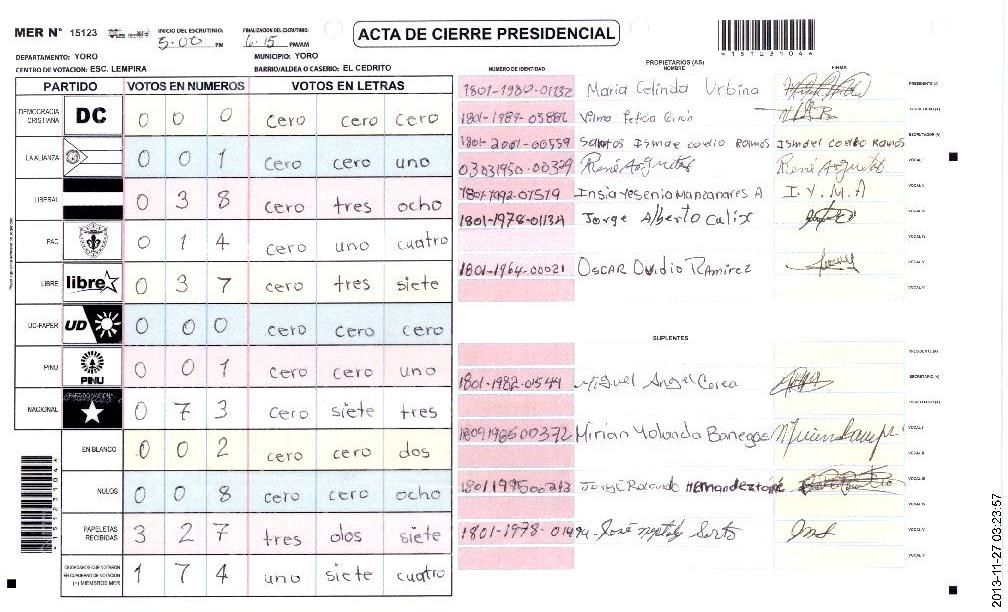 MER N° 15123 INICIO DEL ESCRUTINIO: 5:00 PM FINALIZACION DEL ESCRUTINIO: 6:15 PM/AM
ACTA DE CIERRE PRESIDENCIAL
DEPARTAMENTO: YORO MUNICIPIO: YORO
CENTRO DE VOTACION: ESC. LEMPIRA BARRIO/ALDEA O CASERIO: EL CEDRITO
PARTIDO VOTOS EN NUMEROS VOTOS EN LETRAS
DEMOCRACIA CRISTIANA DC 0 0 0 cero cero cero
LA ALIANZA 0 0 1 cero cero uno
LIBERAL 0 3 8 cero tres ocho
PAC 0 1 4 cero uno cuatro
LIBRE libre 0 3 7 cero tres siete
UD-FAPER UD 0 0 0 cero cero cero
PINU PINU 0 0 1 cero cero uno
NACIONAL 0 7 3 cero siete tres
EN BLANCO 0 0 2 cero cero dos
NULOS 0 0 8 cero cero ocho
PAPELETAS RECIBIDAS 3 2 7 tres dos siete
CIUDADANOS QUE VOTARON EN CUADERNO DE VOTACION (+) MIEMBROS MER 1 7 4 uno siete cuatro
PROPIETARIOS (AS)
NUMERO DE IDENTIDAD NOMBRE FIRMA
Maria Celinda Urbina PRESIDENTE (A)
Vilma SECRETARIO (A)
1801-2001-00559 Santos Ismael Ramos Ismael Ramos ESCRUTADOR (A)
René Argueta René Argueta VOCAL I
Manzanares A I. Y. M. A VOCAL II
Jorge Alberto Calix VOCAL III
VOCAL IV
1801-1964-00021 Oscar Ovidio Ramirez VOCAL V
VOCAL VI
SUPLENTES
PRESIDENTE (A)
1801-1982-01544 Miguel Angel SECRETARIO (A)
ESCRUTADOR (A)
1809198500372 Mirian Yolanda Banegas VOCAL I
VOCAL II
1801199500213 Jorge Rolando Hernandez VOCAL III
VOCAL IV
1801-1978-01494 José VOCAL V
VOCAL VI
2013-11-27 03:23:57